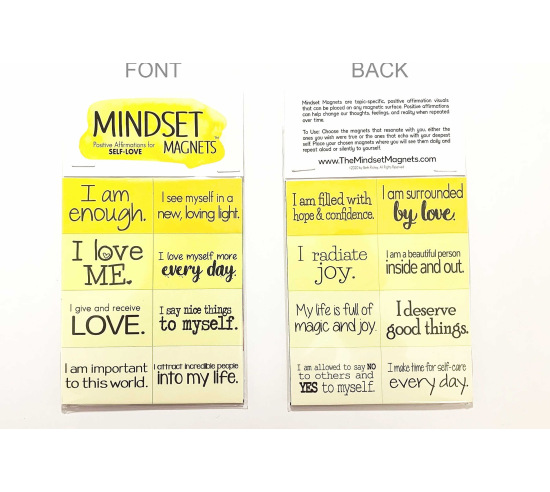 FONT
MINDSET
MAGNETS™
Positive Affirmations for
SELF-LOVE
I am
enough.
I see myself in a
new, loving light.
I love
ME.
I love myself more
every day.
I give and receive
LOVE.
I say nice things
to myself.
I am important
to this world.
I attract incredible people
into my life.
BACK
Mindset Magnets are topic-specific, positive affirmation visuals
that can be placed on any magnetic surface. Positive affirmations
can help change our thoughts, feelings, and reality when repeated
over time.
To Use: Choose the magnets that resonate with you, either the
ones you wish were true or the ones that echo with your deepest
self. Place your chosen magnets where you will see them daily and
repeat aloud or silently to yourself.
www.TheMindsetMagnets.com
I am filled with
hope & confidence.
I am surrounded
by love.
I radiate
joy.
I am a beautiful person
inside and out.
My life is full of
magic and joy.
I deserve
good things.
I am allowed to say NO
to others and
YES to myself.
I make time for self-care
every day.